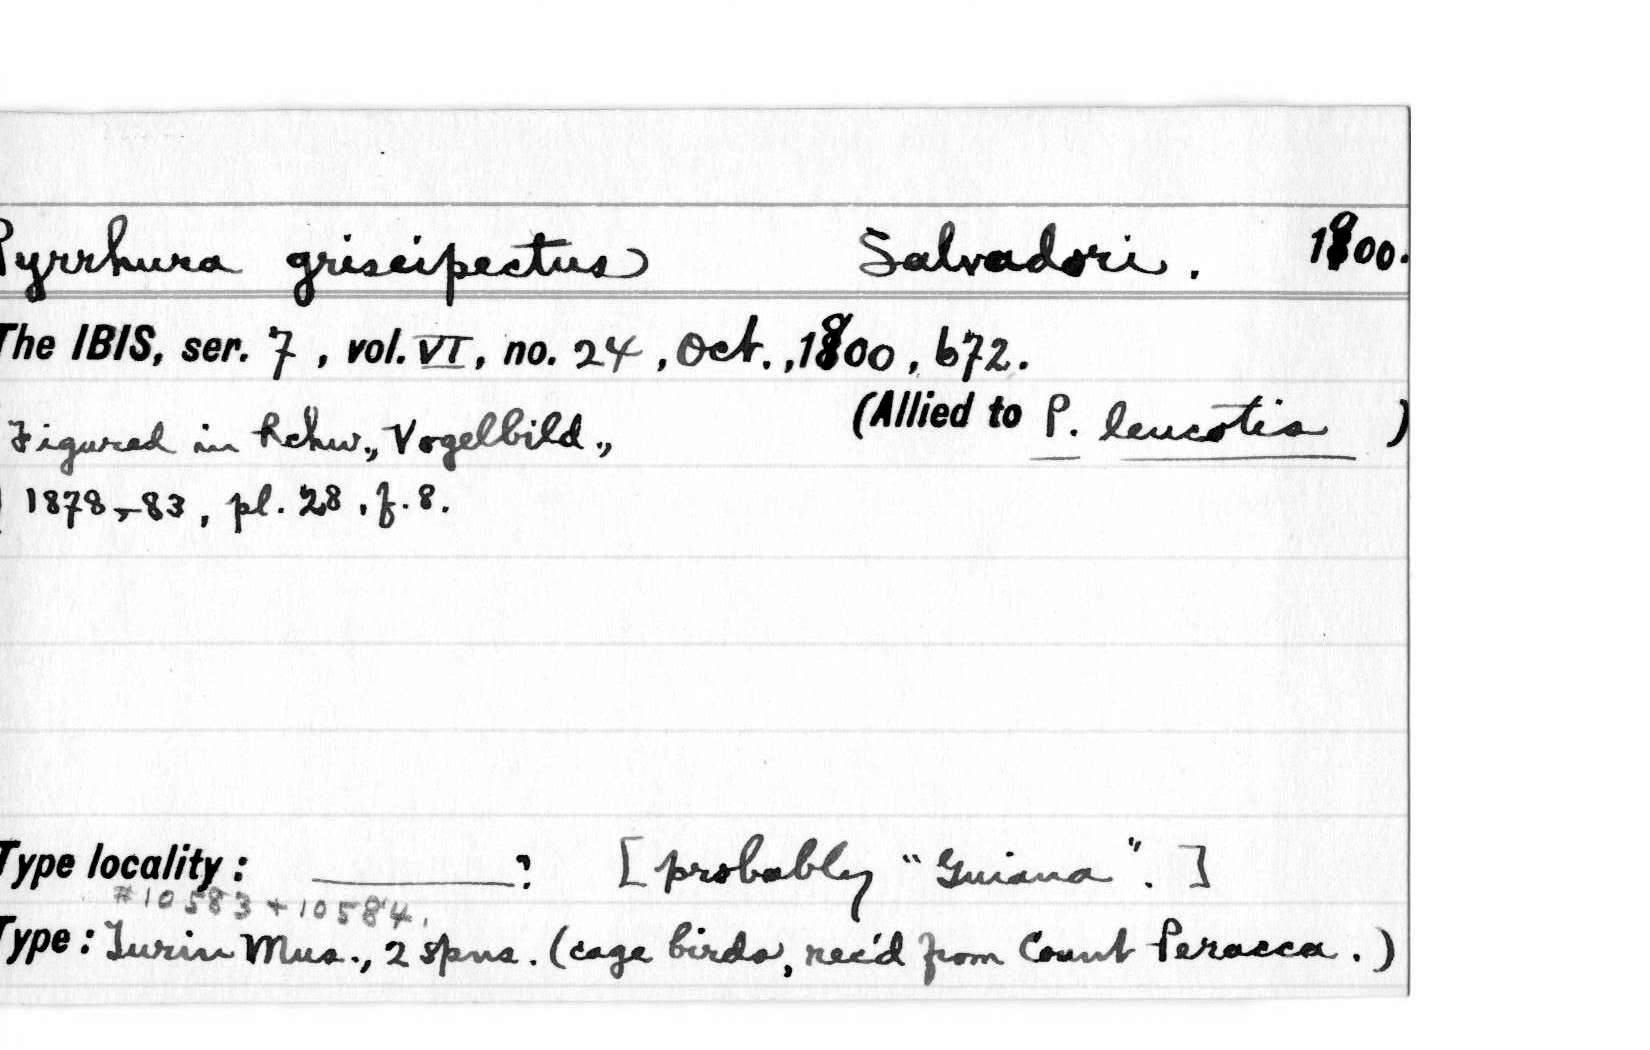 Pyrrhura griseipectus Salvadori. 1900.
The IBIS, ser. 7, vol. VI, no. 24, Oct., 1900, 672.
(Allied to P. leucotis)
Figured in Rchw., Vogelbild.,
1878-83, pl. 28, f. 8.
Type locality: ______? [probably "Guiana".]
#10583 + 10584.
Type: Turin Mus., 2 spns. (cage birds, rec'd from Count Peracca.)